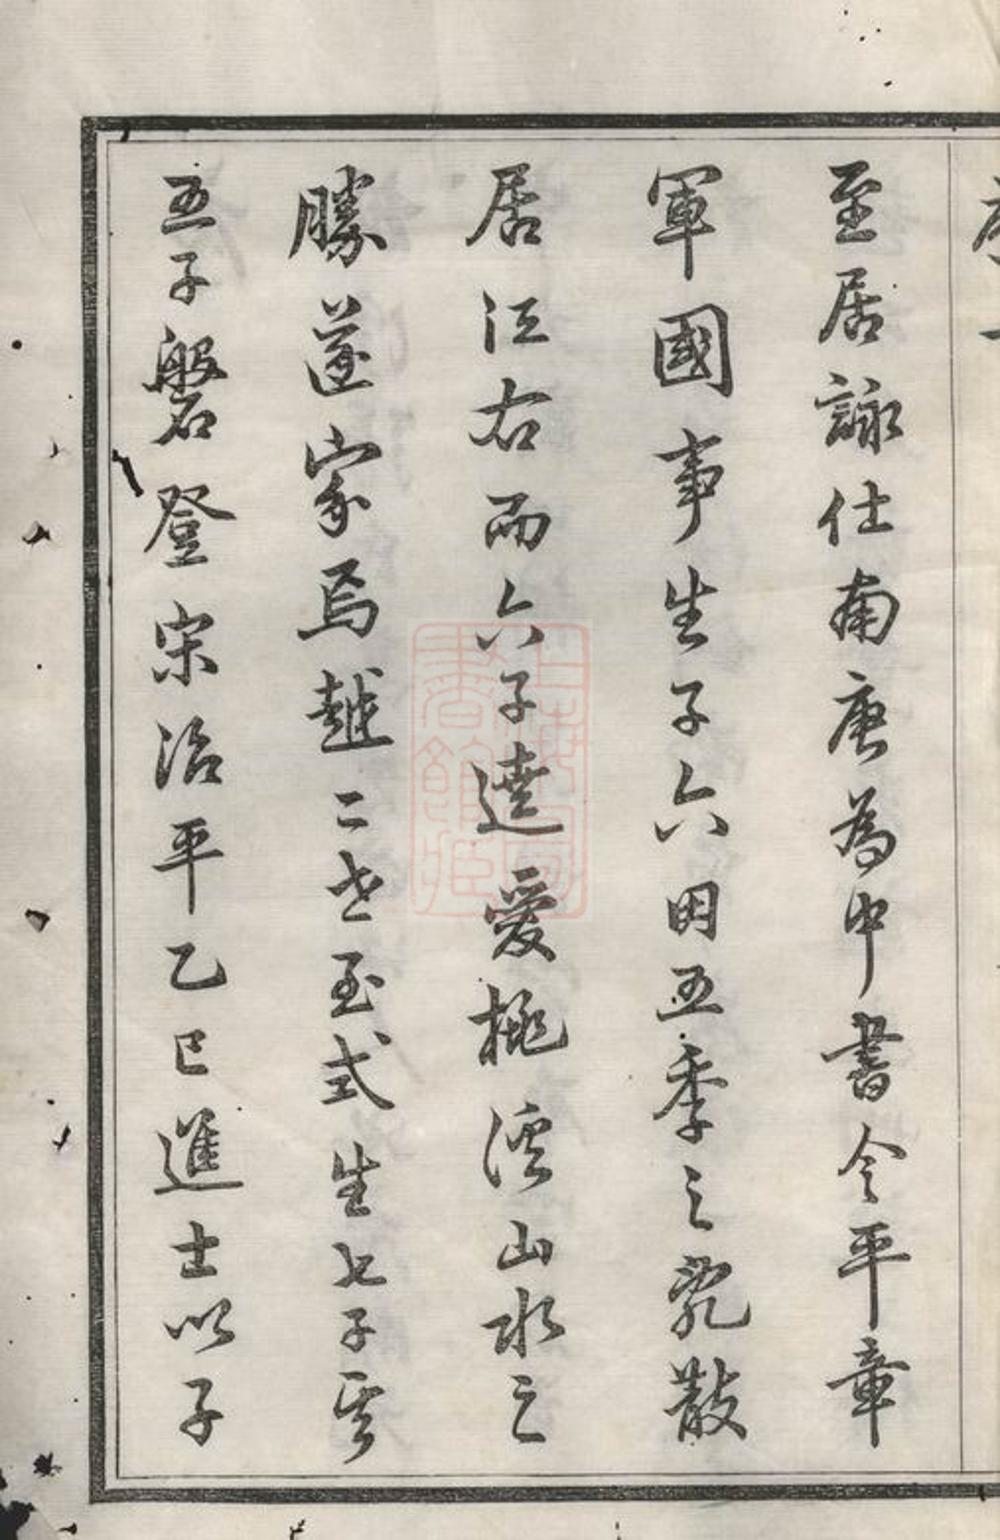 至居詠仕南唐為中書令平章
軍國事生子六因五季之亂散
居江右而六子遶愛桃溪山水之
勝遂家焉越二世至式生七子其
五子磐登宋治平乙巳進士以子
上海圖
書館藏